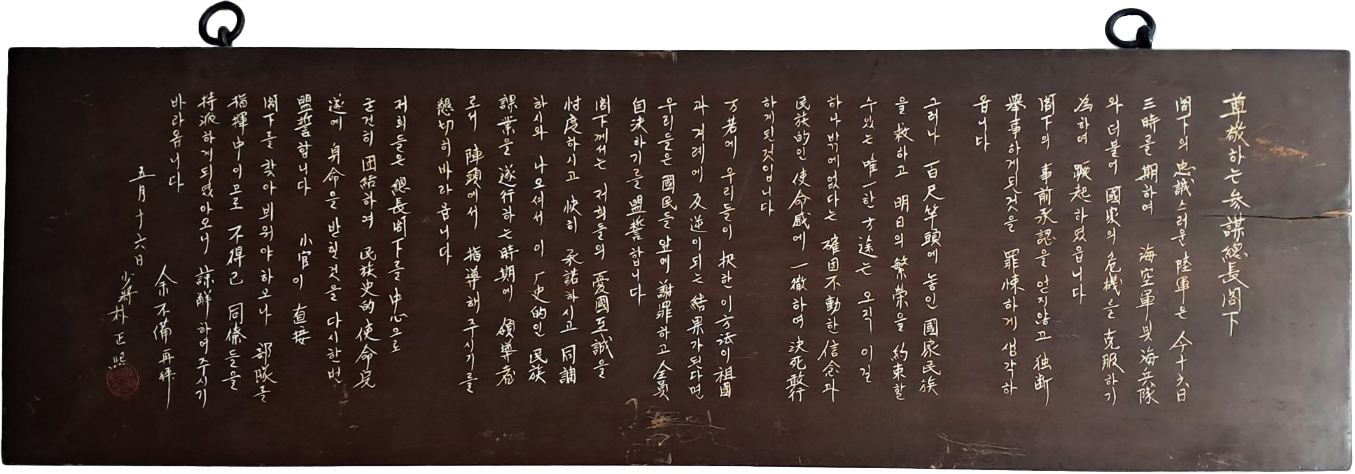 尊敬하는 參謀總長 閣下
閣下의 忠誠스러운 陸軍은 今十六日
三時를 期하여 海空軍 및 海兵隊
와 더불어 國家의 危機를 克服하기
為하여 蹶起하였읍니다
閣下의 事前承認을 얻지않고 独断
擧事하게된것을 罪悚하게 생각하
옵니다
그러나 百尺竿頭에 놓인 國家民族
을 救하고 明日의 繁榮을 約束할
수있는 唯一한 方途는 오직 이길
하나밖에 없다는 確固不動한 信念과
民族的인 使命感에 一徹하여 決死敢行
하게된것입니다
万若에 우리들이 択한 이 方法이 祖國
과 겨레에 反逆이되는 結果가된다면
우리들은 國民들 앞에 謝罪하고 全員
自決하기를 盟誓합니다
閣下께서는 저희들의 憂國至誠을
忖度하시고 快히 承諾하시고 同調
하시와 나오셔서 이 歴史的인 民族
課業을 遂行하는 時期에 領導者
로서 陣頭에서 指導해주시기를
懇切히 바라옵니다
저희들은 總長閣下를 中心으로
굳건히 団結하여 民族史的 使命完
遂에 身命을 받힐것을 다시한번
盟誓합니다 小官이 直接
閣下를 찾아 뵈워야하오나 部隊를
指揮中이므로 不得已 同僚들을
特派하게되였아오니 諒解하여주시기
바라옵니다
余不備再拜
五月十六日
少將 朴正熙